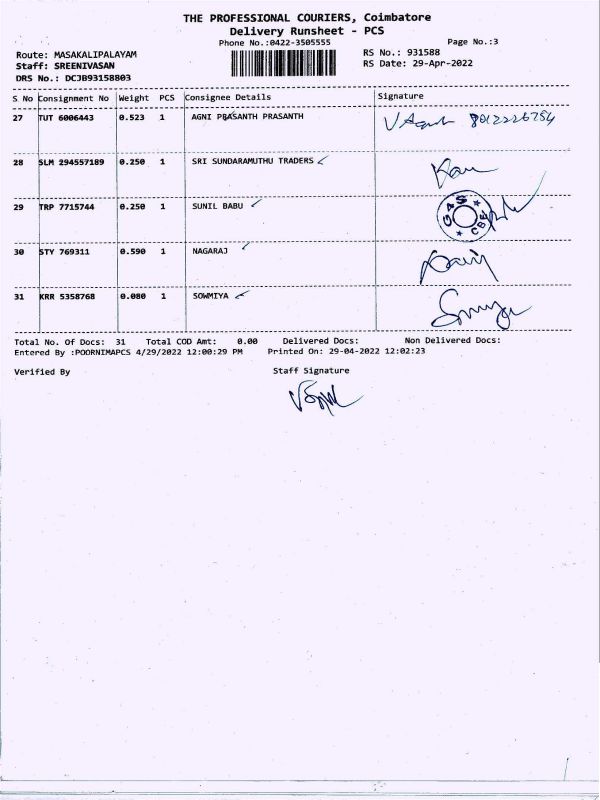 THE PROFESSIONAL COURIERS, Coimbatore
Delivery Runsheet - PCS
Phone No.:0422-3505555 Page No.:3
Route: MASAKALIPALAYAM RS No.: 931588
Staff: SREENIVASAN RS Date: 29-Apr-2022
DRS No.: DCJB93158803
S No Consignment No Weight PCS Consignee Details Signature
27 TUT 6006443 0.523 1 AGNI PRASANTH PRASANTH
28 SLM 294557189 0.250 1 SRI SUNDARAMUTHU TRADERS
29 TRP 7715744 0.250 1 SUNIL BABU
30 STY 769311 0.590 1 NAGARAJ
31 KRR 5358768 0.080 1 SOWMIYA
Total No. Of Docs: 31 Total COD Amt: 0.00 Delivered Docs: Non Delivered Docs:
Entered By :POORNIMAPCS 4/29/2022 12:00:29 PM Printed On: 29-04-2022 12:02:23
Verified By Staff Signature